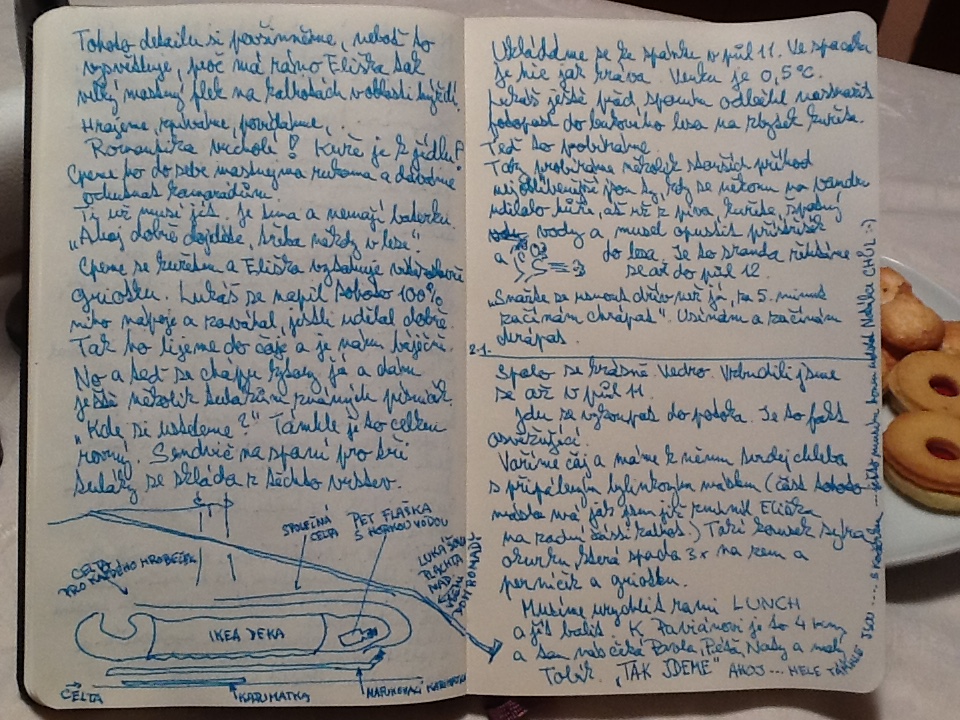 Tohoto detailu si povšimněme, neboť to
vysvětluje, proč má ráno Eliška tak
velký mastný flek na kalhotách v oblasti hýždí.
Hrajeme, zpíváme, povídáme, ..
Romantika vrcholí! Kuře je k jídlu!
Cpeme ho do sebe mastnýma rukama a dáváme
ochutnat kamarádům.
Ti už musí jít. Je tma a nemají baterku.
„Ahoj dobře dojděte, třeba někdy v lese".
Cpeme se kuřetem a Eliška vytahuje
griotku. Lukáš se napil tohoto 100%
ního nápoje a zaváhal, jestli udělal dobře.
Tak ho lijeme do čaje a je nám báječně.
No a teď se chápu kytary já a dám
ještě několik tulákům známých písniček.
„Kde si usteleme?" Támhle je to celkem
rovný. Sendvič na spaní pro tři
tuláky se skládá z těchto vrstev.
SPOLEČNÁ
CELTA
PET FLAŠKA
S HORKOU VODOU
CELTA
PRO KAŽDÉHO HROBEČEK
LUKÁŠOVA
PLACHTA
NAD
VŠEMI
DOHROMADY
IKEA DEKA
CELTA
KARIMATKA
NAFUKOVACÍ KARIMATKA
Ukládáme se ke spánku v půl 11. Ve spacáku
je mi jak kráva. Venku je 0,5°C.
Lukáš ještě před spaním odlétil nastražit
fotopast do bukového lesa na zbytek kuřete.
Teď to probíráme.
Tak probíráme několik starších příhod
nejoblíbenější jsou ty, kdy se někomu na vandru
udělalo blbě, ať už z piva, kuřete, špatný
vody a musel opustit přístřešek
a do lesa. Je to sranda řehtáme
se až do půl 12.
„Snažte se usnout dřív než já, za 5. minut
začínám chrápat". Usínám a začínám
chrápat.
2.1.
Spalo se krásně. Vedro. Vzbudili jsme
se až v půl 11.
Jdu se vykoupat do potoka. Je to fakt
osvěžující.
Vaříme čaj a máme k němu tvrdej chleba
s připáleným bylinkovým máslem (část tohoto
másla má jak jsem již zmínil Eliška
na zadní části kalhot.) Taky kousek sejra
okurku, která spadá 3x na zem a
perníček a griotku.
Musíme urychlit ranní LUNCH
a jít balit. K Paviánovi je to 4 km,
a tam nás čeká Pavla, Péťa, Naďa a malej
Tobík. „TAK JDEME" AHOJ... HELE TÁMHLE
JSOU ....